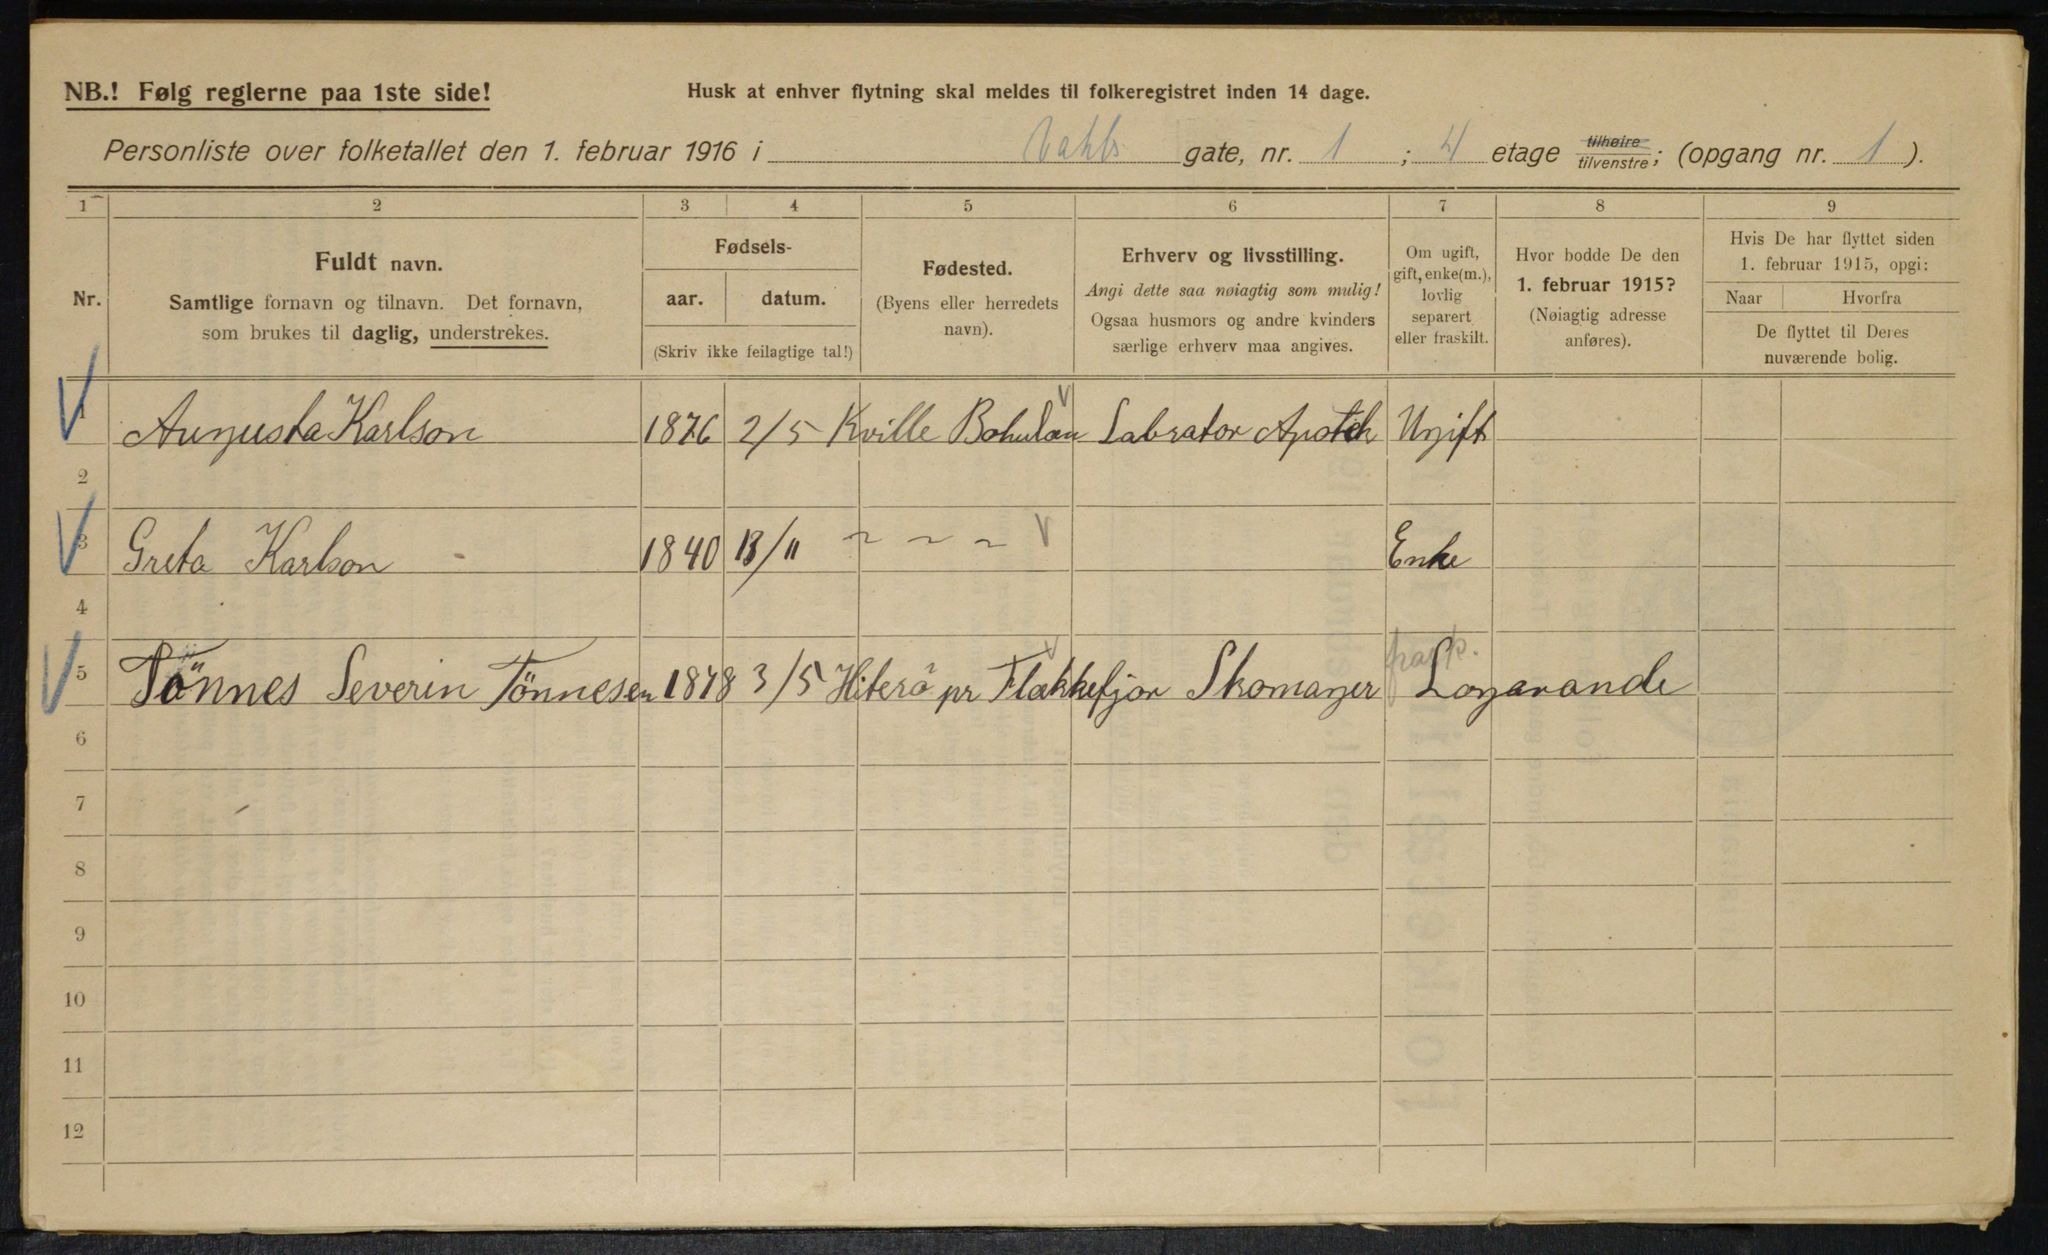 NB.! Følg reglerne paa 1ste side!
Husk at enhver flytning skal meldes til folkeregistret inden 14 dage.
Personliste over folketallet den 1. februar 1916 i Dahls gate, nr. 1 ; 4 etage tilhøire tilvenstre; (opgang nr. 1 ).
1 2 3 4 5 6 7 8 9
Nr.
Fuldt navn.
Samtlige fornavn og tilnavn. Det fornavn,
som brukes til daglig, understrekes.
Fødsels-
aar. datum.
(Skriv ikke feilagtige tal!)
Fødested.
(Byens eller herredets
navn).
Erhverv og livsstilling.
Angi dette saa nøiagtig som mulig!
Ogsaa husmors og andre kvinders
særlige erhverv maa angives.
Om ugift,
gift, enke(m.),
lovlig
separert
eller fraskilt.
Hvor bodde De den
1. februar 1915?
(Nøiagtig adresse
anføres).
Hvis De har flyttet siden
1. februar 1915, opgi:
Naar Hvorfra
De flyttet til Deres
nuværende bolig.
1 Augusta Karlson 1876 2/5 Kville Bohulän Labrator Apotek Ugift
2
3 Greta Karlson 1840 13/11 ~ ~ ~ Enke
4
5 Tönnes Severin Tönnesen 1878 3/5 Hiterö pr Flekkefjor Skomager Logarande
6
7
8
9
10
11
12